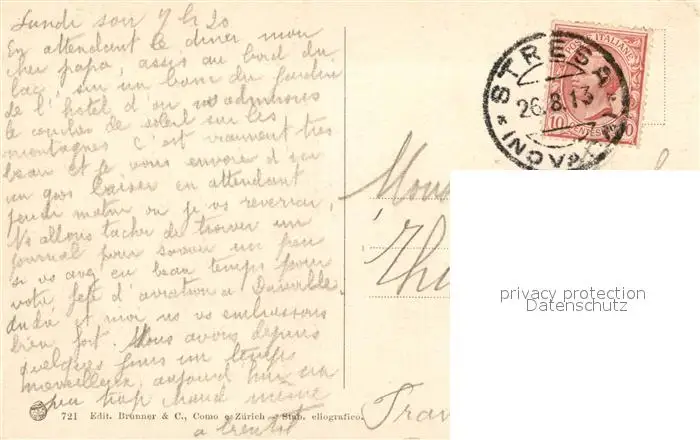 Lundi soir 7 h 20
En attendant le diner mon
cher papa, assis au bord du
lac, sur un banc du jardin
de l'hotel d'ou nous admirons
le coucher de soleil sur les
montagnes c'est vraiment très
beau et je vous envoie d'ici
un gros baiser en attendant
jeudi matin ou je vs reverrai,
Ns allons tacher de trouver un
journal pour savoir un peu
si vs avez eu beau temps pour
votre fête d'aviation a
et moi ns vs embrassons
bien fort. Nous avons depuis
quelques jours un temps
merveilleux, aujourd'hui un
peu trop chaud même
a bientôt
721 Edit. Brunner & C., Como e Zürich - Stab. eliografico.
STRESA
26.8.13
POSTE ITALIANE
10 CENTESIMI 10
Mons
Thi
privacy protection
Datenschutz